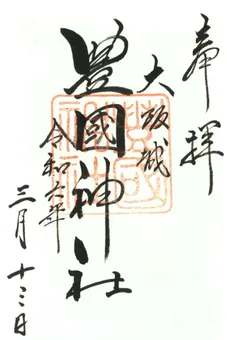 奉拝
大阪城
豊國神社
令和六年
三月十三日